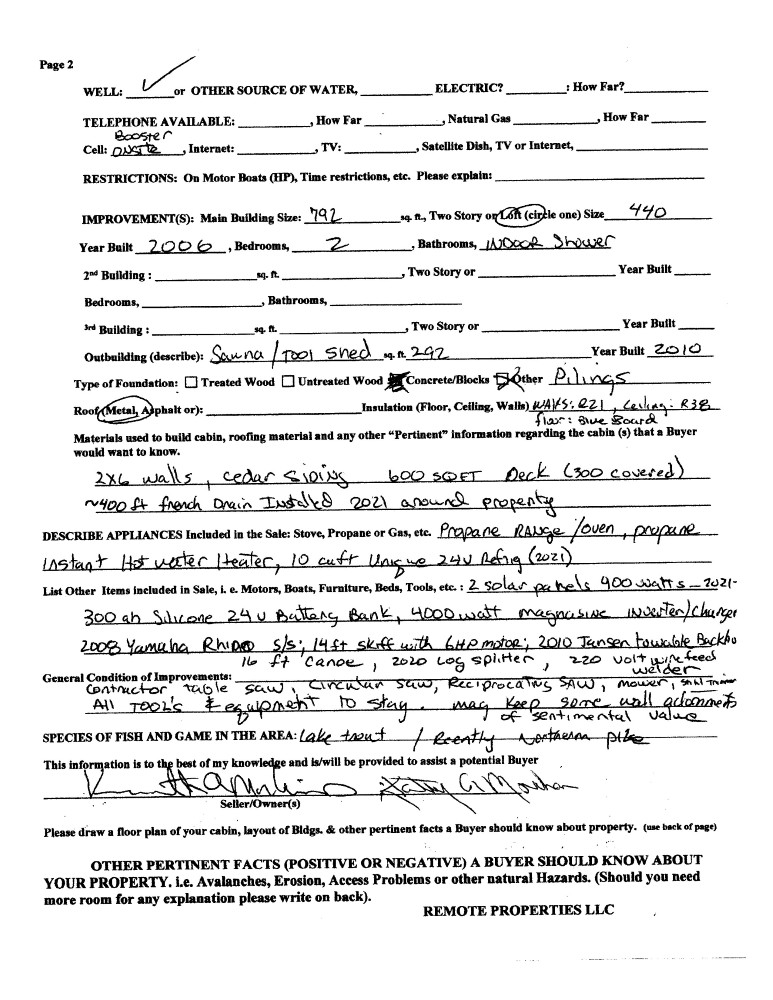 Page 2
WELL: ✓ or OTHER SOURCE OF WATER, ____________ ELECTRIC? __________: How Far? ____________
TELEPHONE AVAILABLE: ____________, How Far ____________, Natural Gas ____________, How Far ________
Booster
Cell: ONSite, Internet: __________, TV: __________, Satellite Dish, TV or Internet, ____________
RESTRICTIONS: On Motor Boats (HP), Time restrictions, etc. Please explain: ____________
IMPROVEMENT(S): Main Building Size: 792 sq. ft., Two Story or Loft (circle one) Size 440
Year Built 2006, Bedrooms, 2, Bathrooms, INDOOR Shower
2nd Building : ____________ sq. ft. ____________, Two Story or ____________ Year Built ______
Bedrooms, ____________, Bathrooms, ____________
3rd Building : ____________ sq. ft. ____________, Two Story or ____________ Year Built ______
Outbuilding (describe): Sauna / Tool Shed sq. ft. 292 Year Built 2010
Type of Foundation: ☐ Treated Wood ☐ Untreated Wood Concrete/Blocks ☑ Other Pilings
Roof (Metal, Asphalt or): ____________ Insulation (Floor, Ceiling, Walls) WAllS: R21, Ceiling: R38
floor: Blue Board
Materials used to build cabin, roofing material and any other “Pertinent” information regarding the cabin (s) that a Buyer
would want to know.
2x6 walls, cedar siding 600 SQFT Deck (300 covered)
~400 ft french Drain Installed 2021 around property
DESCRIBE APPLIANCES Included in the Sale: Stove, Propane or Gas, etc. Propane RANGE /oven, propane
Instant Hot water Heater, 10 cuft Unique 24V Refrig (2021)
List Other Items included in Sale, i. e. Motors, Boats, Furniture, Beds, Tools, etc. : 2 solar panels 900 watts - 2021-
300 ah Silicone 24 v Battery Bank, 4000 watt magnasine inverter/charger
2008 Yamaha Rhino S/S; 14ft skiff with 6HP motor; 2010 Jansen towable Backho
16 ft canoe, 2020 Log splitter, 220 volt wirefeed
welder
General Condition of Improvements:
Contractor table saw, Circular saw, Reciprocating SAW, mower,
All TOOL'S & equipment to stay. may keep some wall adornments
of sentimental value
SPECIES OF FISH AND GAME IN THE AREA: Lake trout / Recently Northern pike
This information is to the best of my knowledge and is/will be provided to assist a potential Buyer
Seller/Owner(s)
Please draw a floor plan of your cabin, layout of Bldgs. & other pertinent facts a Buyer should know about property. (use back of page)
OTHER PERTINENT FACTS (POSITIVE OR NEGATIVE) A BUYER SHOULD KNOW ABOUT
YOUR PROPERTY. i.e. Avalanches, Erosion, Access Problems or other natural Hazards. (Should you need
more room for any explanation please write on back).
REMOTE PROPERTIES LLC